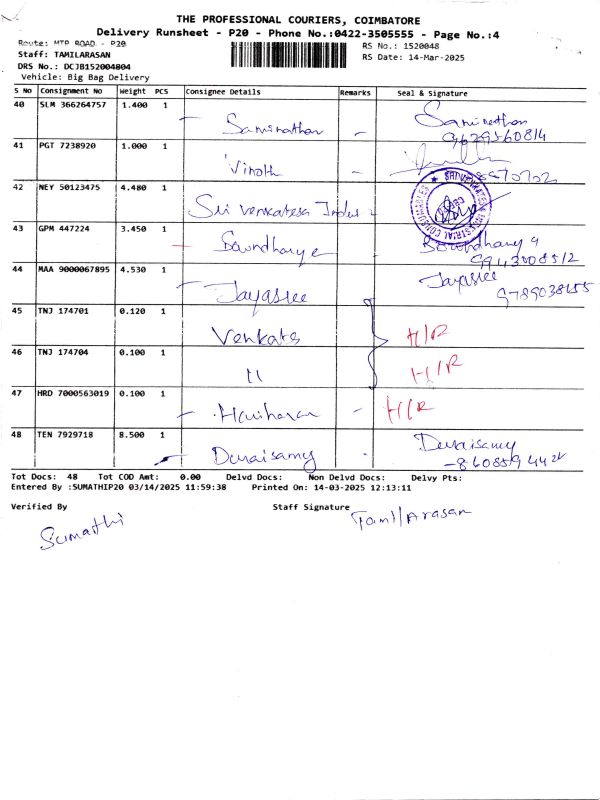 THE PROFESSIONAL COURIERS, COIMBATORE
Delivery Runsheet - P20 - Phone No.:0422-3505555 - Page No.:4
Route: MTP ROAD - P20
RS No.: 1520048
Staff: TAMILARASAN
RS Date: 14-Mar-2025
DRS No.: DCJB152004804
Vehicle: Big Bag Delivery
S No Consignment No Weight PCS Consignee Details Remarks Seal & Signature
40 SLM 366264757 1.400 1 Saminathan - Saminathan
9629560814
41 PGT 7238920 1.000 1 Vinoth -
42 NEY 50123475 4.480 1 Sri Venkatesa Indus
SRI VENKATESA INDUSTRIAL CONSUMABLES
43 GPM 447224 3.450 1 Sowndharya
9943008512
44 MAA 9000067895 4.530 1 Jayasree Jayasree
9789038655
45 TNJ 174701 0.120 1 Venkats H/R
46 TNJ 174704 0.100 1 11 H/R
47 HRD 7000563019 0.100 1 Hariharan - H/R
48 TEN 7929718 8.500 1 Duraisamy Duraisamy
Tot Docs: 48 Tot COD Amt: 0.00 Delvd Docs: Non Delvd Docs: Delvy Pts:
Entered By :SUMATHIP20 03/14/2025 11:59:38 Printed On: 14-03-2025 12:13:11
Verified By Staff Signature
Sumathi TamilArasan